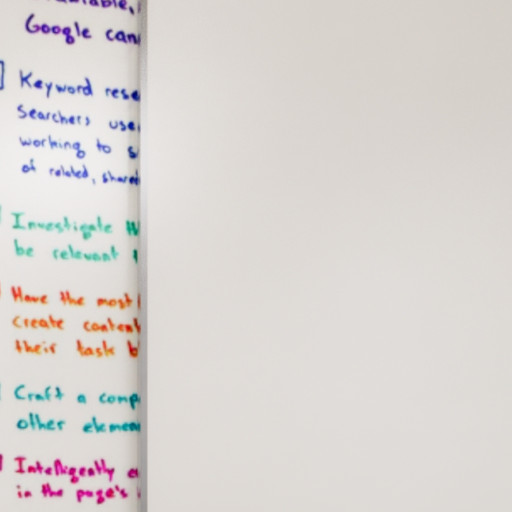 Google can
Keyword rese
Searchers use
working to s
of related, shared
Investigate
be relevant
Have the most
create content
their task b
Craft a comp
other elemen
Intelligently e
in the page's